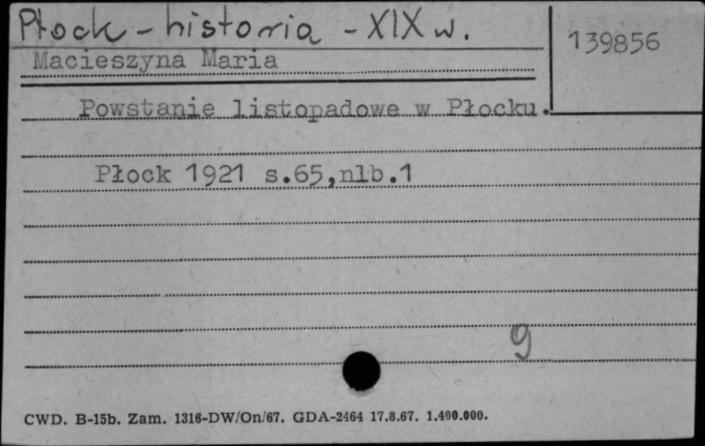 Płock - historia - XIX w.
139856
Macieszyna Maria
Powstanie listopadowe w Płocku.
Płock 1921 s.65,nlb.1
9
CWD. B-15b. Zam. 1316-DW/On/67. GDA-2464 17.8.67. 1.400.000.